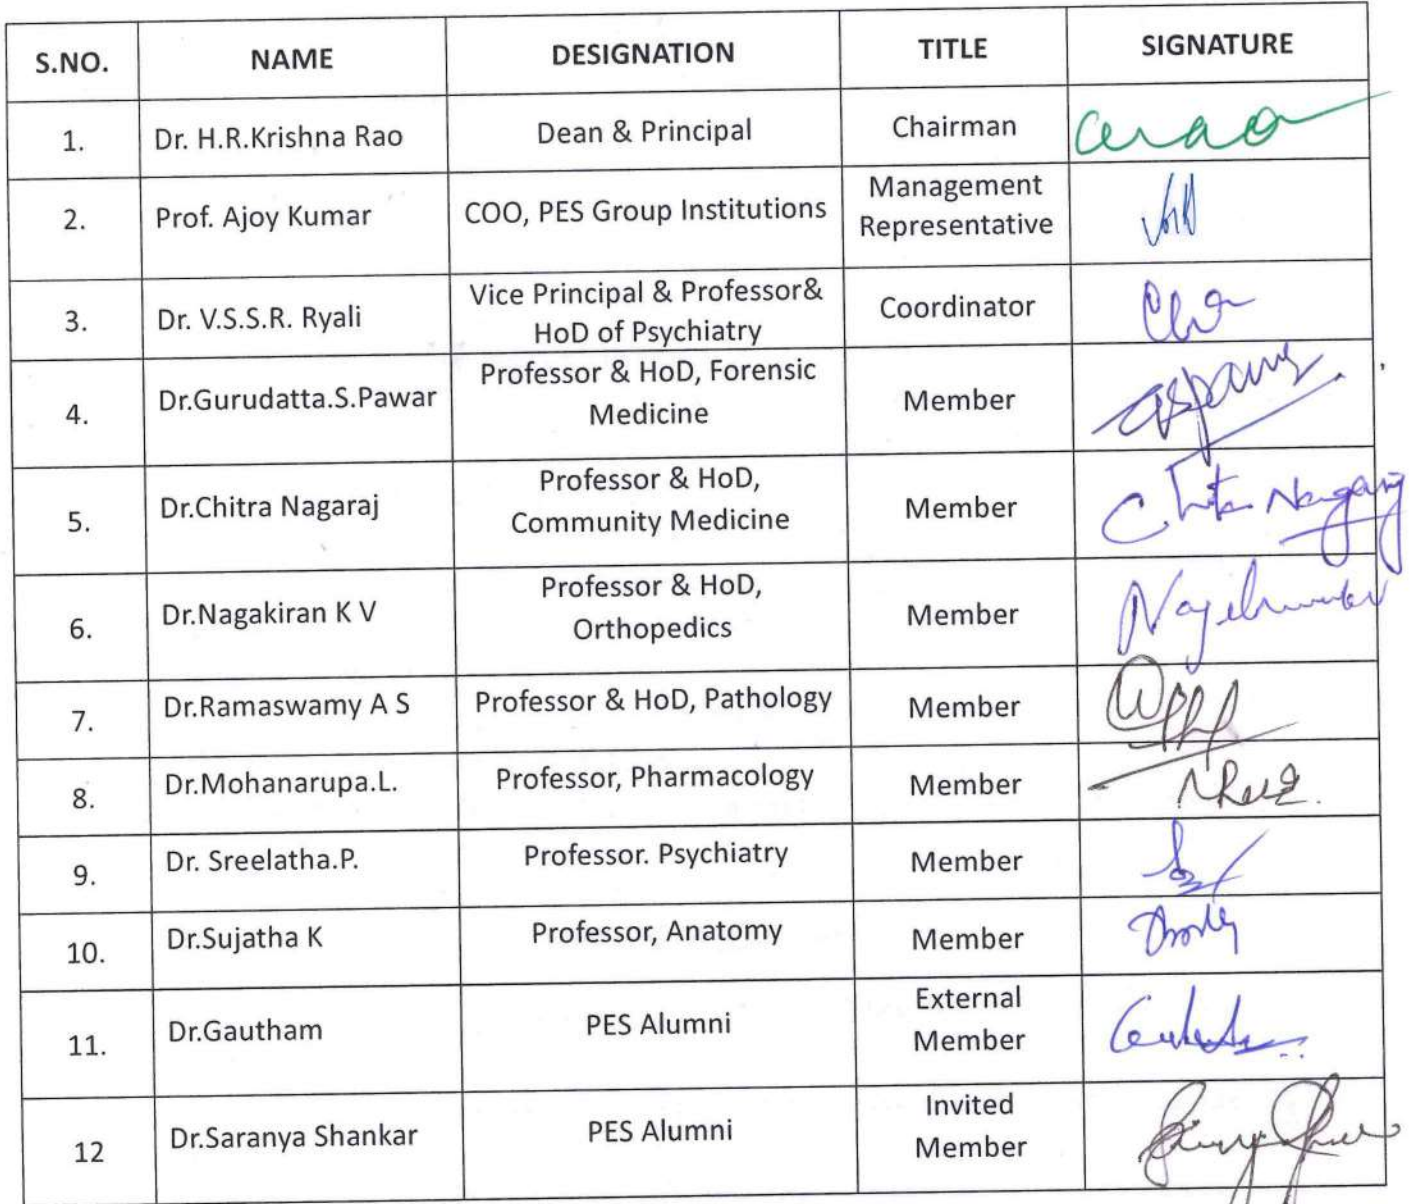 S.NO. NAME DESIGNATION TITLE SIGNATURE
1. Dr. H.R.Krishna Rao Dean & Principal Chairman
2. Prof. Ajoy Kumar COO, PES Group Institutions Management
Representative
3. Dr. V.S.S.R. Ryali Vice Principal & Professor&
HoD of Psychiatry Coordinator
4. Dr.Gurudatta.S.Pawar Professor & HoD, Forensic
Medicine Member
5. Dr.Chitra Nagaraj Professor & HoD,
Community Medicine Member Chitra Nagaraj
6. Dr.Nagakiran K V Professor & HoD,
Orthopedics Member
7. Dr.Ramaswamy A S Professor & HoD, Pathology Member
8. Dr.Mohanarupa.L. Professor, Pharmacology Member
9. Dr. Sreelatha.P. Professor. Psychiatry Member
10. Dr.Sujatha K Professor, Anatomy Member
11. Dr.Gautham PES Alumni External
Member
12 Dr.Saranya Shankar PES Alumni Invited
Member